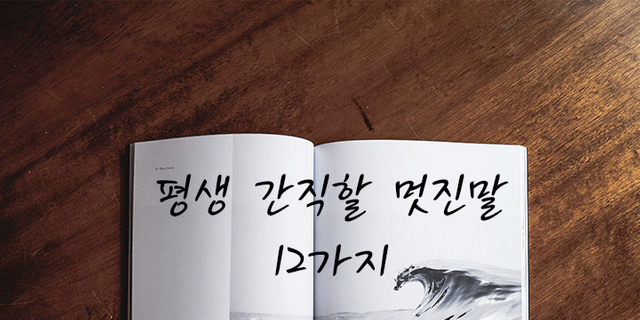 평생 간직할 멋진말
12가지